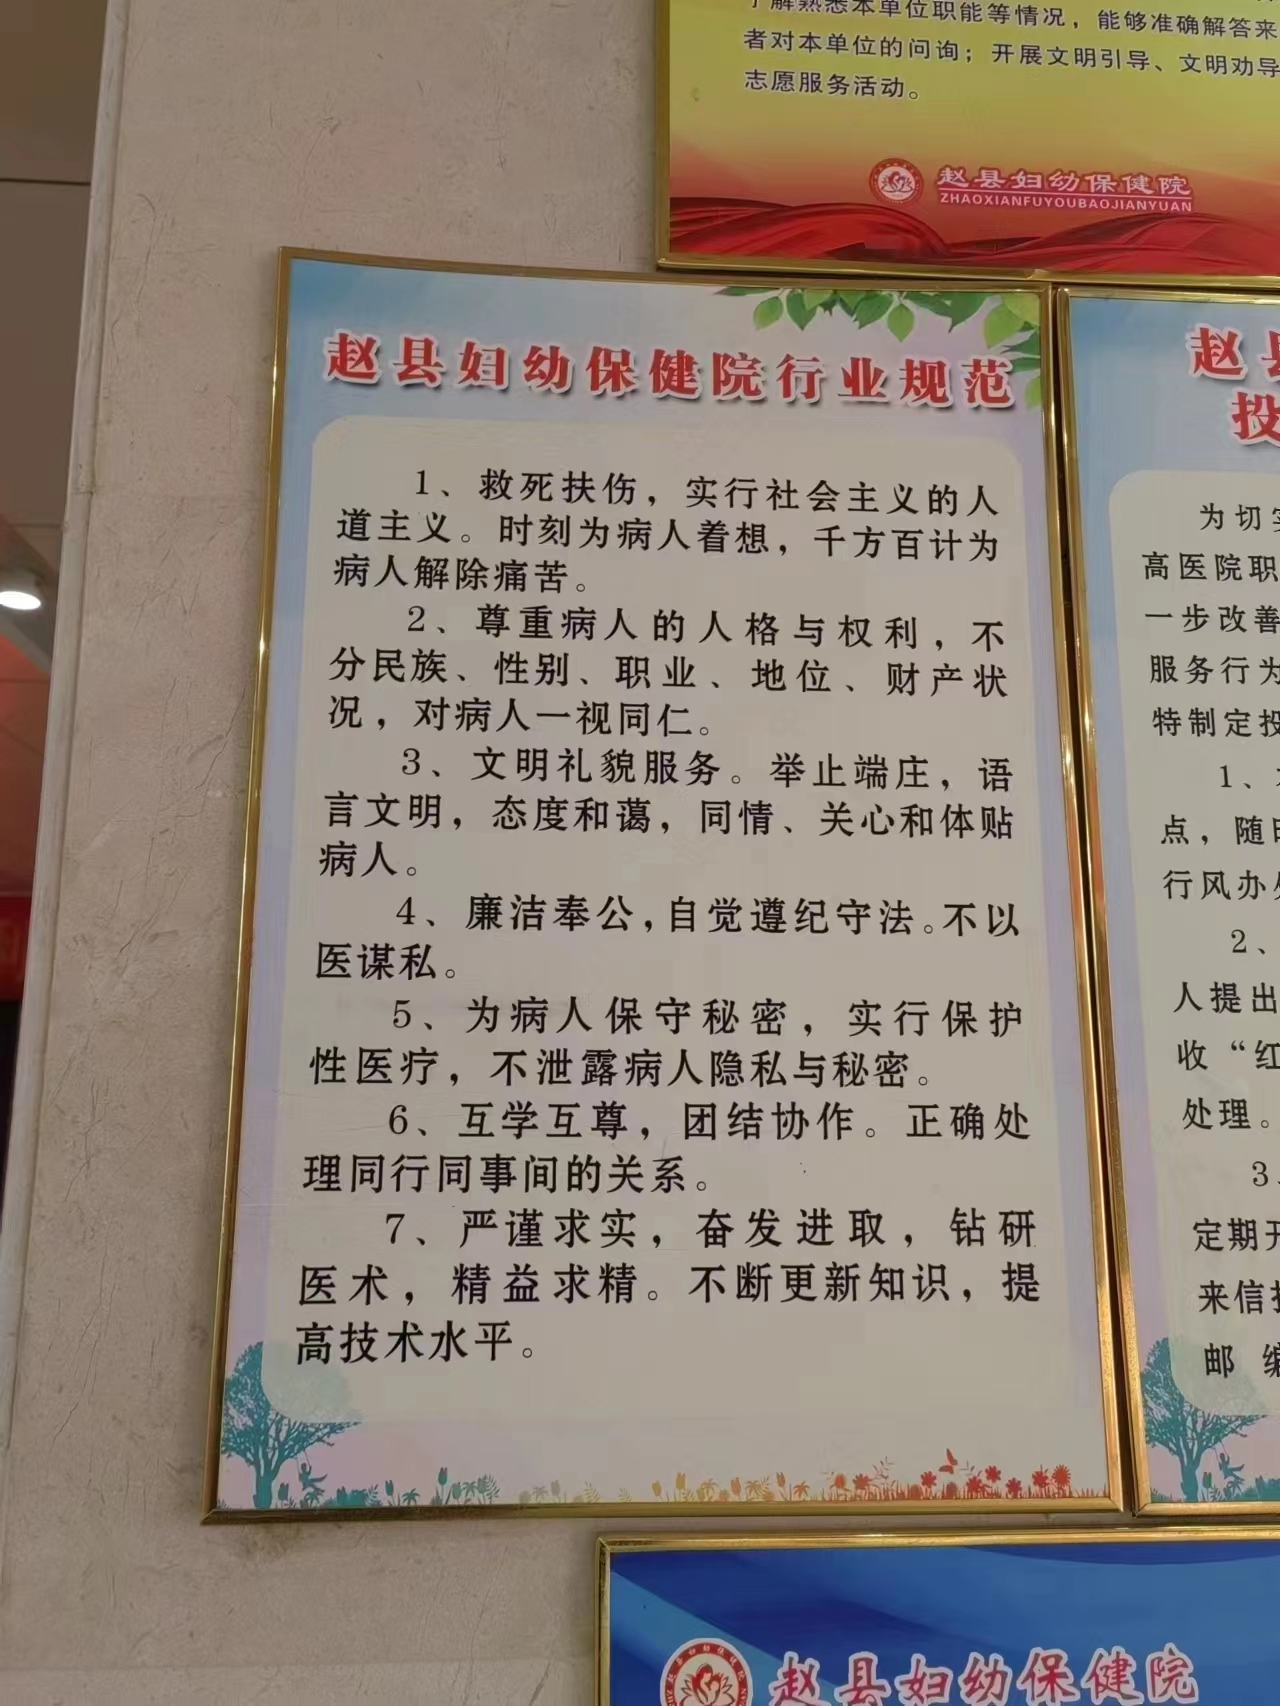 了解熟悉本单位职能等情况，能够准确解答来
者对本单位的问询；开展文明引导、文明劝导
志愿服务活动。
赵县妇幼保健院
ZHAOXIANFUYOUBAOJIANYUAN
赵县妇幼保健院行业规范
1、救死扶伤，实行社会主义的人
道主义。时刻为病人着想，千方百计为
病人解除痛苦。
2、尊重病人的人格与权利，不
分民族、性别、职业、地位、财产状
况，对病人一视同仁。
3、文明礼貌服务。举止端庄，语
言文明，态度和蔼，同情、关心和体贴
病人。
4、廉洁奉公，自觉遵纪守法。不以
医谋私。
5、为病人保守秘密，实行保护
性医疗，不泄露病人隐私与秘密。
6、互学互尊，团结协作。正确处
理同行同事间的关系。
7、严谨求实，奋发进取，钻研
医术，精益求精。不断更新知识，提
高技术水平。
赵县
投
为切实
高医院职
一步改善
服务行为
特制定投
1、
点，随时
行风办处
2、
人提出
收“红
处理。
3、
定期开
来信投
邮编
赵县妇幼保健院